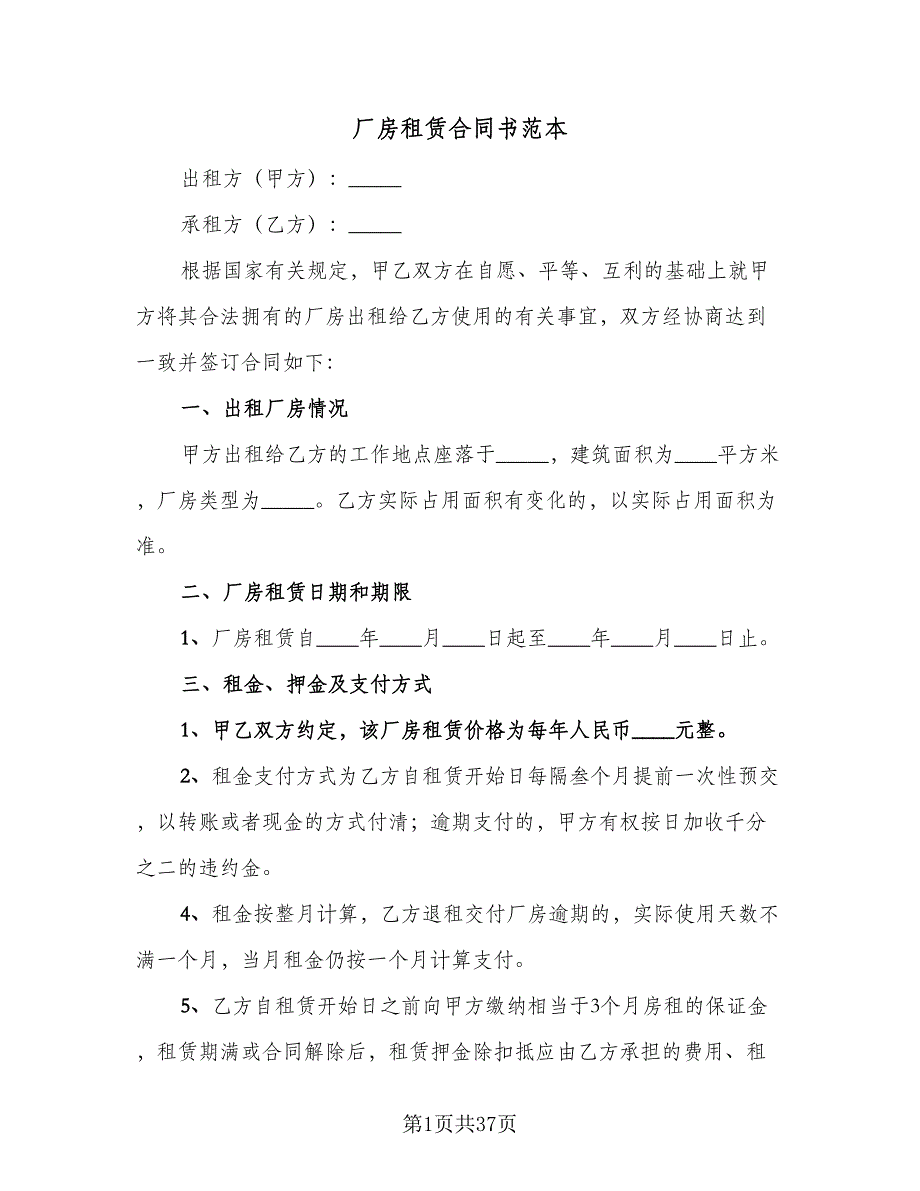 厂房租赁合同书范本
出租方（甲方）：_____
承租方（乙方）：_____
根据国家有关规定，甲乙双方在自愿、平等、互利的基础上就甲
方将其合法拥有的厂房出租给乙方使用的有关事宜，双方经协商达到
一致并签订合同如下：
一、出租厂房情况
甲方出租给乙方的工作地点座落于_____，建筑面积为____平方米
，厂房类型为_____。乙方实际占用面积有变化的，以实际占用面积为
准。
二、厂房租赁日期和期限
1、厂房租赁自____年____月____日起至____年____月____日止。
三、租金、押金及支付方式
1、甲乙双方约定，该厂房租赁价格为每年人民币____元整。
2、租金支付方式为乙方自租赁开始日每隔叁个月提前一次性预交
，以转账或者现金的方式付清；逾期支付的，甲方有权按日加收千分
之二的违约金。
4、租金按整月计算，乙方退租交付厂房逾期的，实际使用天数不
满一个月，当月租金仍按一个月计算支付。
5、乙方自租赁开始日之前向甲方缴纳相当于3个月房租的保证金
，租赁期满或合同解除后，租赁押金除扣抵应由乙方承担的费用、租
第1页共37页